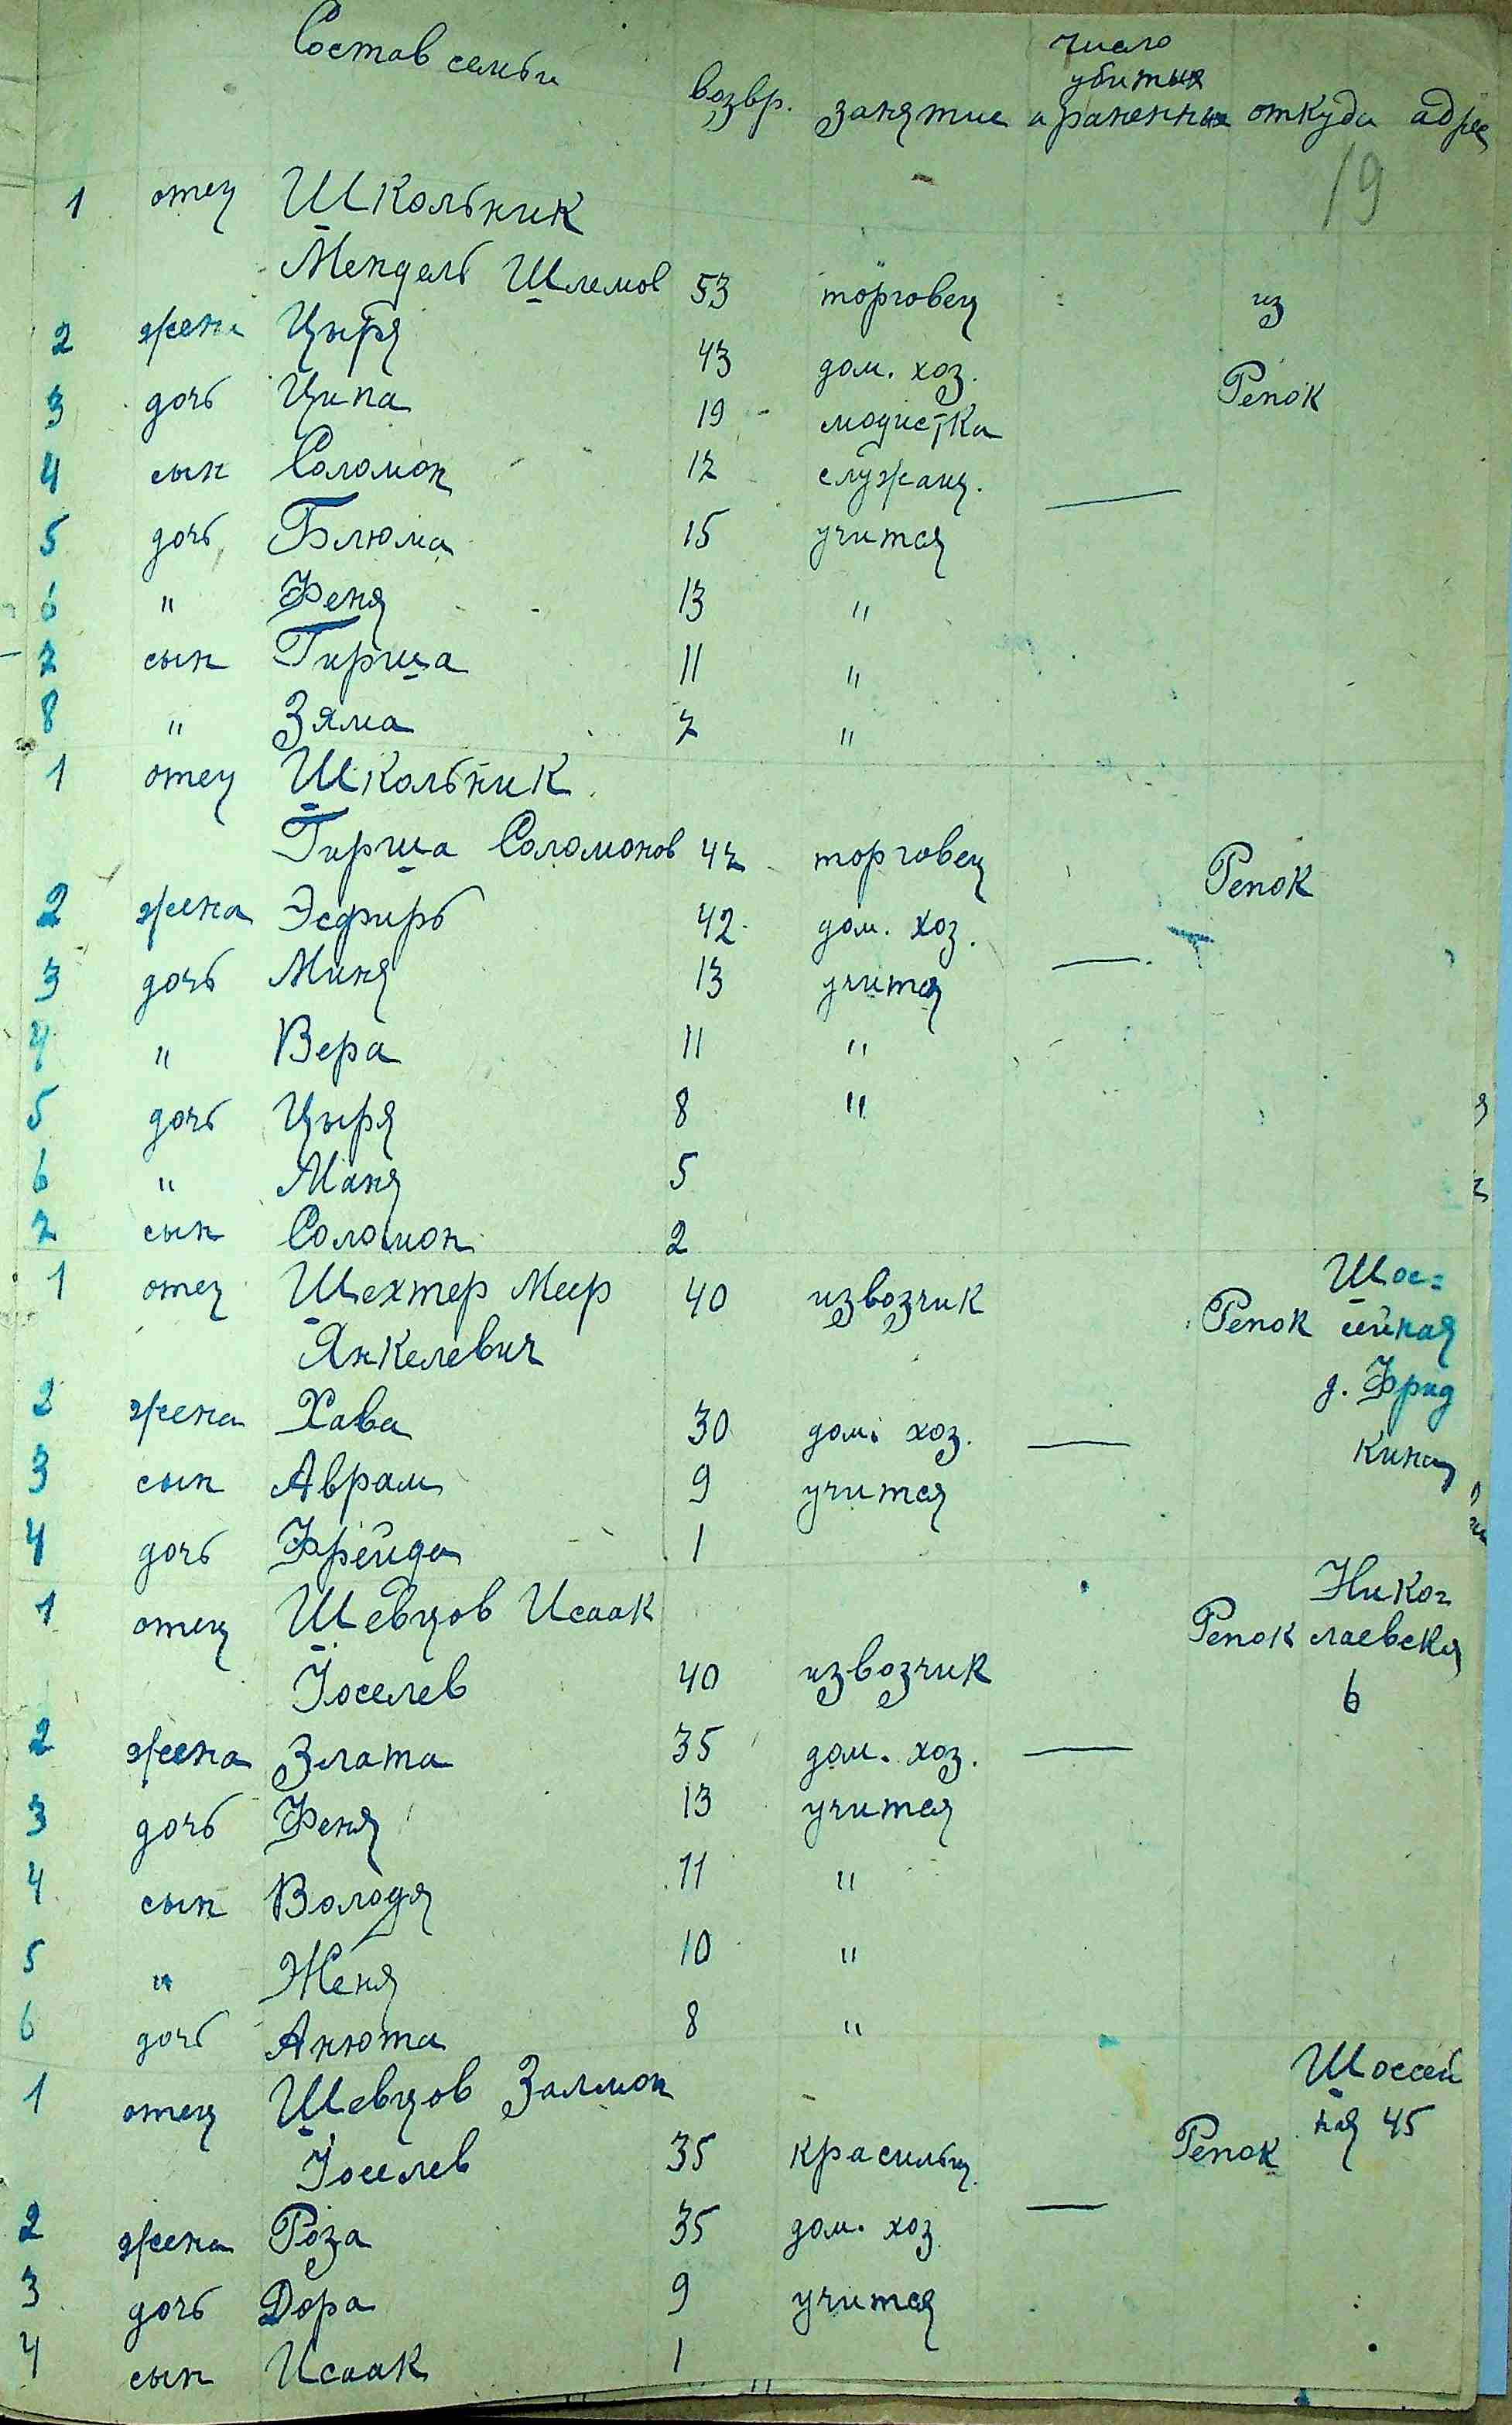 Состав семьи возвр. занятие число убитых и раненных откуда адрес
19
1 отец Школьник
Мендель Шлемов 53 торговец из
2 жена Цыря 43 дом. хоз. Репок
3 дочь Ципа 19 модистка
4 сын Соломон 17 служащ. —
5 дочь Блюма 15 учится
6 " Феня 13 "
7 сын Гирша 11 "
8 " Зяма 7 "
1 отец Школьник
Гирша Соломонов 47 торговец Репок
2 жена Эсфирь 42 дом. хоз. —
3 дочь Миня 13 учится
4 " Вера 11 "
5 дочь Цыря 8 "
6 " Маня 5
7 сын Соломон 2
1 отец Шехтер Меер 40 извозчик Репок Шос=
Янкелевич сейная
2 жена Хава 30 дом. хоз. — д. Фрид
3 сын Аврам 9 учится кина
4 дочь Фрейда 1
1 отец Шевцов Исаак Репок Нико=
Йоселев 40 извозчик лаевская
2 жена Злата 35 дом. хоз. — 6
3 дочь Феня 13 учится
4 сын Володя 11 "
5 " Женя 10 "
6 дочь Анюта 8 "
1 отец Шевцов Залмон Шоссей
Йоселев 35 красильщ. Репок ная 45
2 жена Роза 35 дом. хоз —
3 дочь Дора 9 учится
4 сын Исаак 1